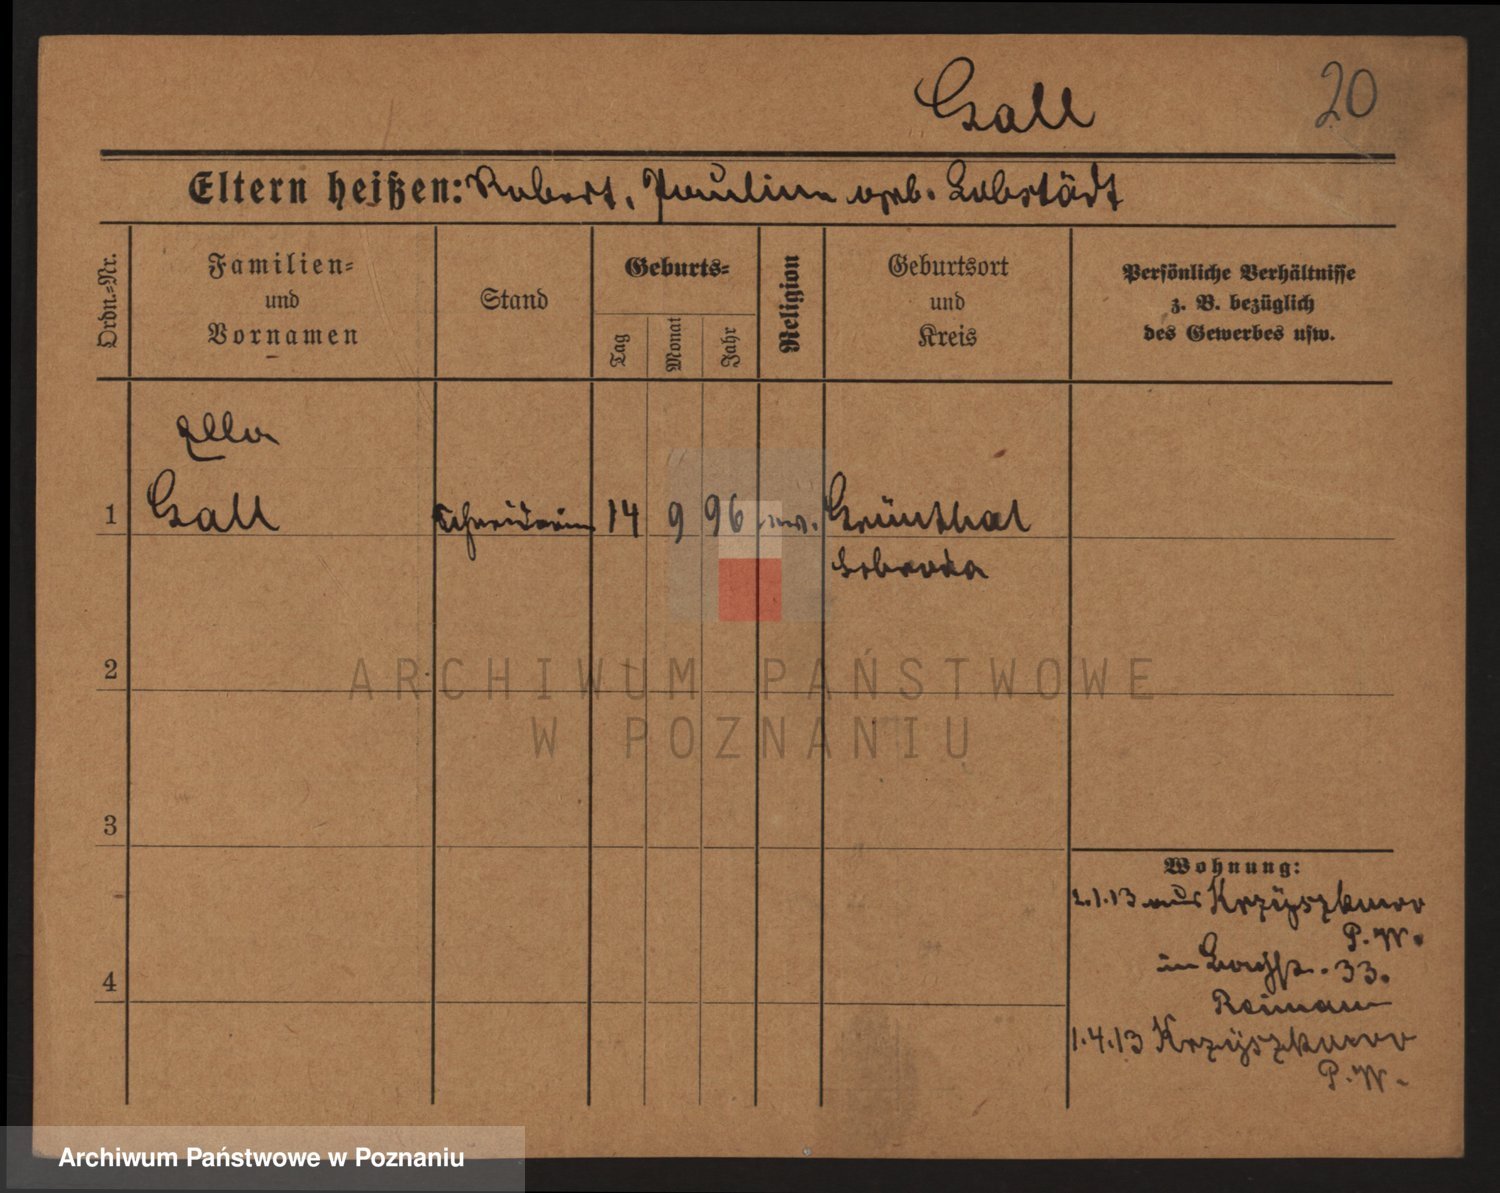 Gall
20
Eltern heißen: Robert, Pauline geb. Lobstädt
Ordn.-Nr.
Familien-
und
Vornamen
Stand
Geburts-
Tag
Monat
Jahr
Religion
Geburtsort
und
Kreis
Persönliche Verhältnisse
z. B. bezüglich
des Gewerbes usw.
Ella
1 Gall Schneiderin 14 9 96 Grünthal
2
3
4
Wohnung:
2.1.13 aus Krzyszkowo
P. W.
in 33.
Reimann
1.4.13 Krzyszkowo
P. W.
ARCHIWUM PAŃSTWOWE
W POZNANIU
Archiwum Państwowe w Poznaniu